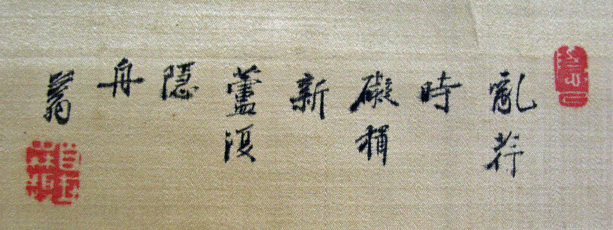 亂荇
時
礙楫
新
蘆復
隱
舟
翁